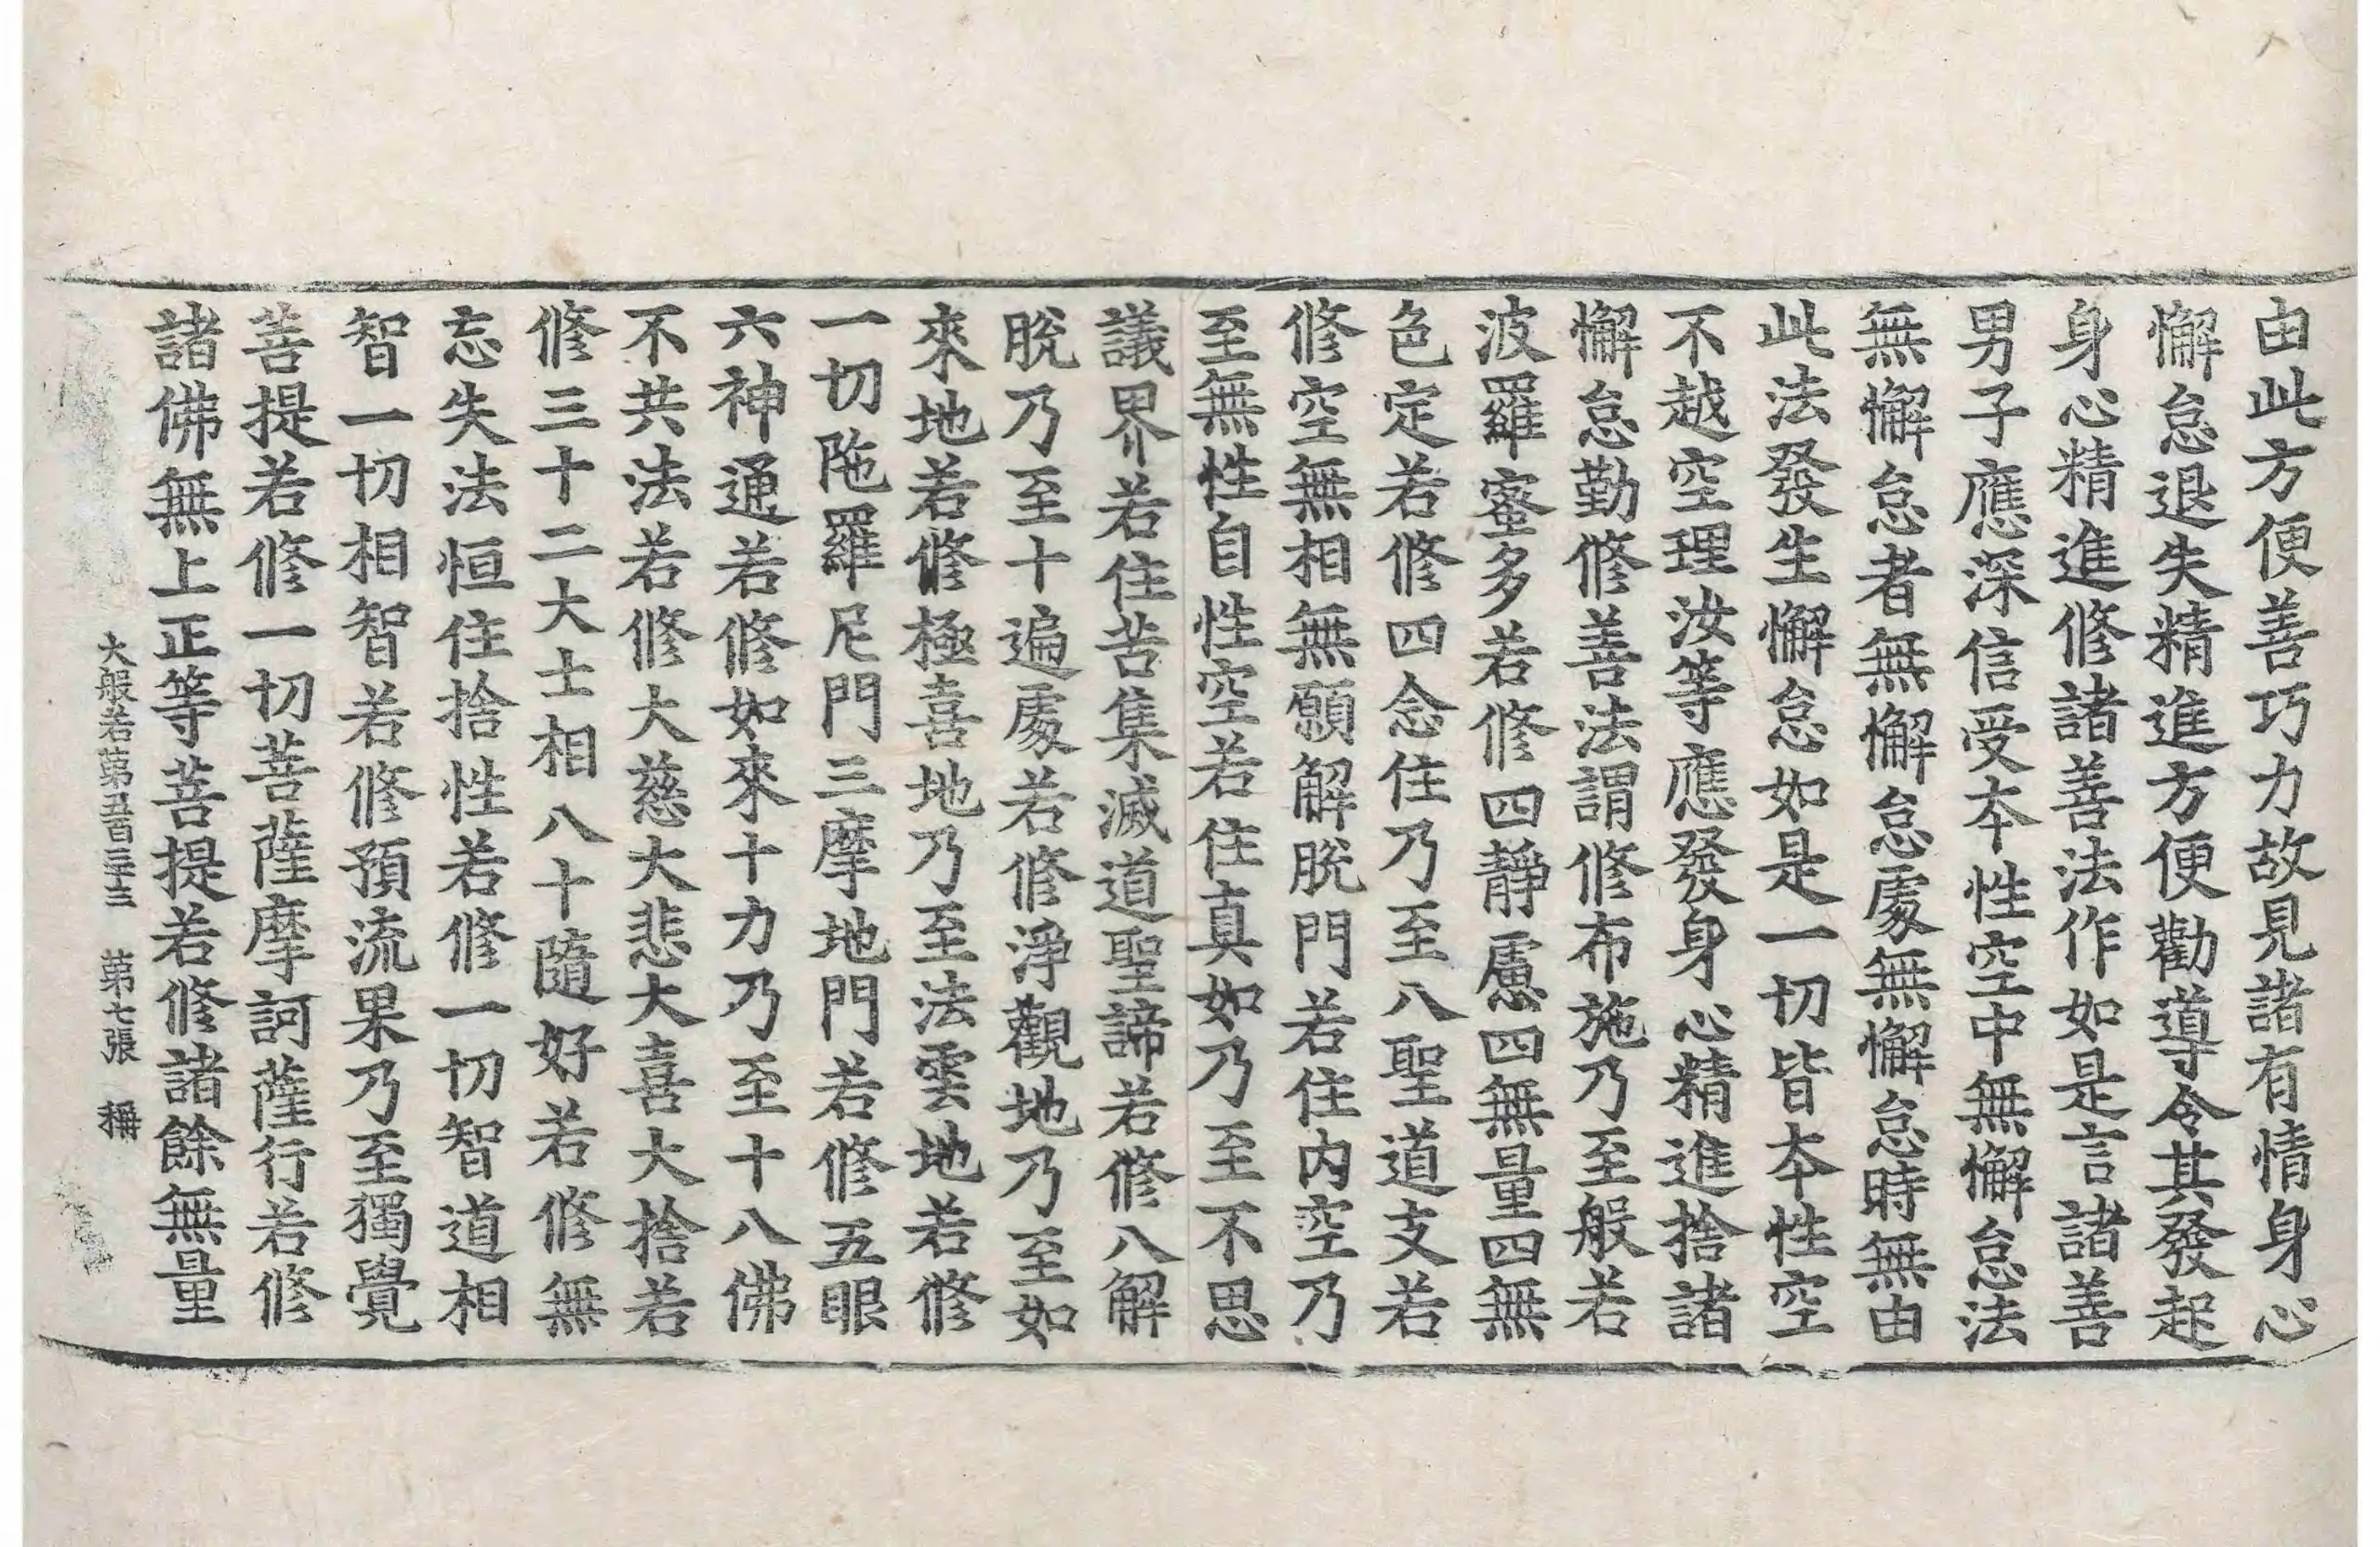 由此方便善巧力故見諸有情身心
懈怠退失精進方便勸導令其發起
身心精進修諸善法作如是言諸善
男子應深信受本性空中無懈怠法
無懈怠者無懈怠處無懈怠時無由
此法發生懈怠如是一切皆本性空
不越空理汝等應發身心精進捨諸
懈怠勤修善法謂修布施乃至般若
波羅蜜多若修四靜慮四無量四無
色定若修四念住乃至八聖道支若
修空無相無願解脫門若住內空乃
至無性自性空若住真如乃至不思
議界若住苦集滅道聖諦若修八解
脫乃至十遍處若修淨觀地乃至如
來地若修極喜地乃至法雲地若修
一切陁羅尼門三摩地門若修五眼
六神通若修如來十力乃至十八佛
不共法若修大慈大悲大喜大捨若
修三十二大士相八十隨好若修無
忘失法恒住捨性若修一切智道相
智一切相智若修預流果乃至獨覺
菩提若修一切菩薩摩訶薩行若修
諸佛無上正等菩提若修諸餘無量
大般若第五百三十三 第七張 稱